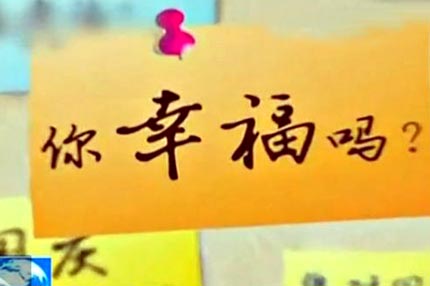 你幸福吗?